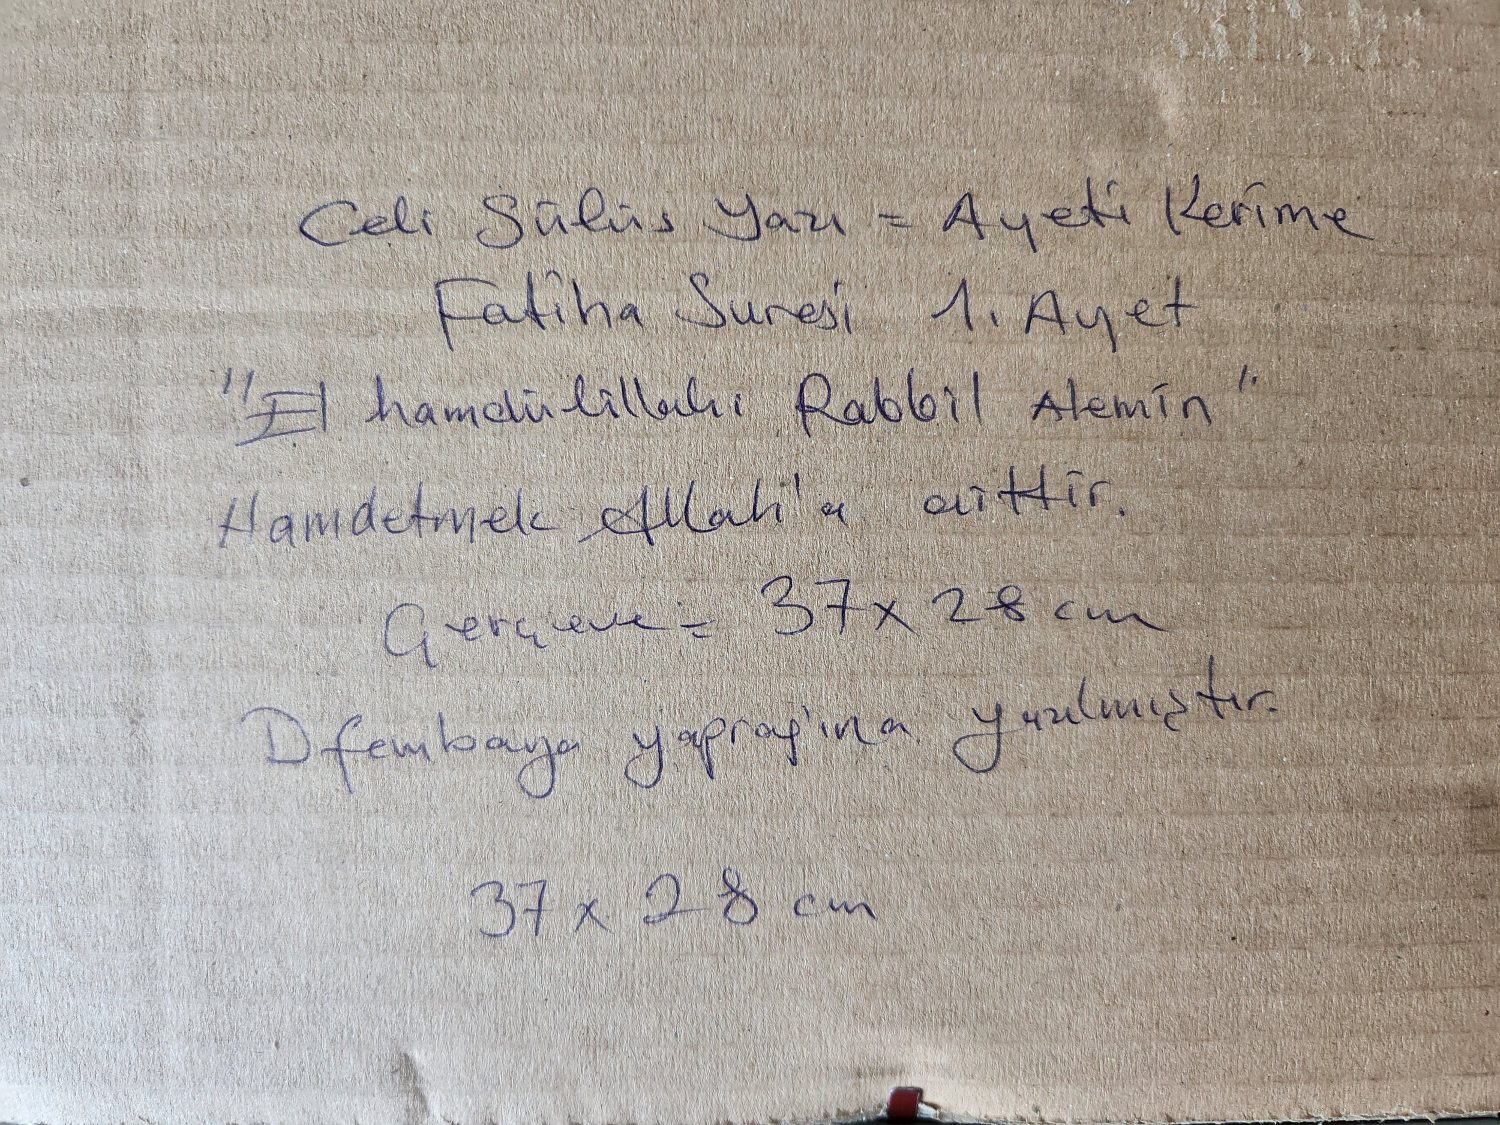 Celi Sülüs Yazı = Ayeti Kerime
Fatiha Suresi 1. Ayet
"El hamdülillahi Rabbil Alemin"
Hamdetmek Allah'a aittir.
Çerçeve = 37 x 28 cm
Difembaya yaprağına yazılmıştır.
37 x 28 cm